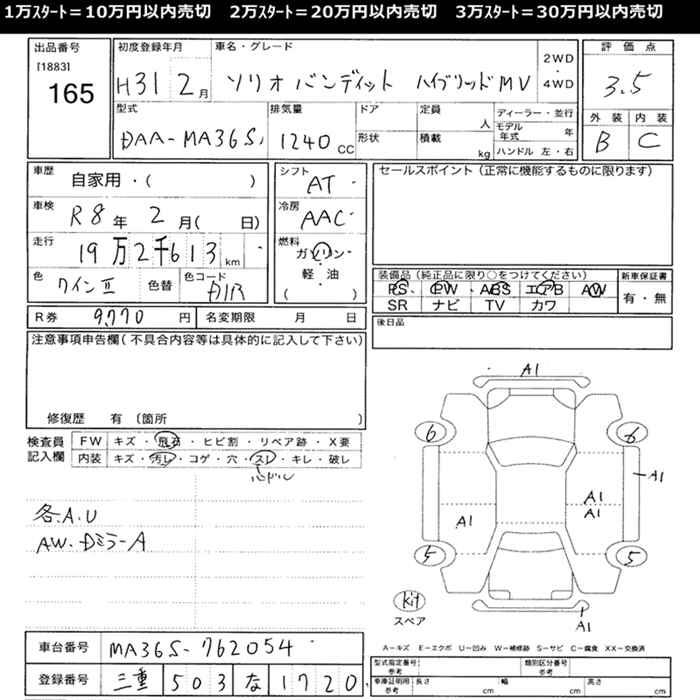 1万スタート=10万円以内売切 2万スタート=20万円以内売切 3万スタート=30万円以内売切
出品番号 [1883] 165
初度登録年月 H31 2月
車名・グレード ソリオ バンディット ハイブリッドMV
2WD・4WD
評価点 3.5
外装 B 内装 C
型式 DAA-MA36S
排気量 1240 cc
ドア 形状
定員 人
積載 kg
ディーラー・並行
モデル年式 年
ハンドル 左・右
車歴 自家用・( )
車検 R8年 2月( 日)
走行 19万2千613 km
色 ワインⅡ 色替 色コード
シフト AT
冷房 AAC
燃料 ガソリン・軽油
( )
セールスポイント(正常に機能するものに限ります)
装備品(純正品に限り○をつけてください) 新車保証書
PS PW ABS エアB AW 有・無
SR ナビ TV カワ
後日品
R券 9,770 円 名変期限 月 日
注意事項申告欄(不具合内容等は具体的に記入して下さい)
修復歴 有 〔箇所 〕
検査員記入欄
FW キズ・飛石・ヒビ割・リペア跡・X要
内装 キズ・汚レ・コゲ・穴・スレ・キレ・破レ
ハンドル
各A.U
AW.DミラーA
A1
6 6
A1
A1
A1 A1
5 5
Kit
スペア
A1
A=キズ E=エクボ U=凹み W=補修跡 S=サビ C=腐食 XX=交換済
車台番号 MA36S-762054
登録番号 三重 503 な 1720
型式指定番号 参考
類別区分番号 参考
車庫証明用 参考 長さ cm 幅 cm 高さ cm